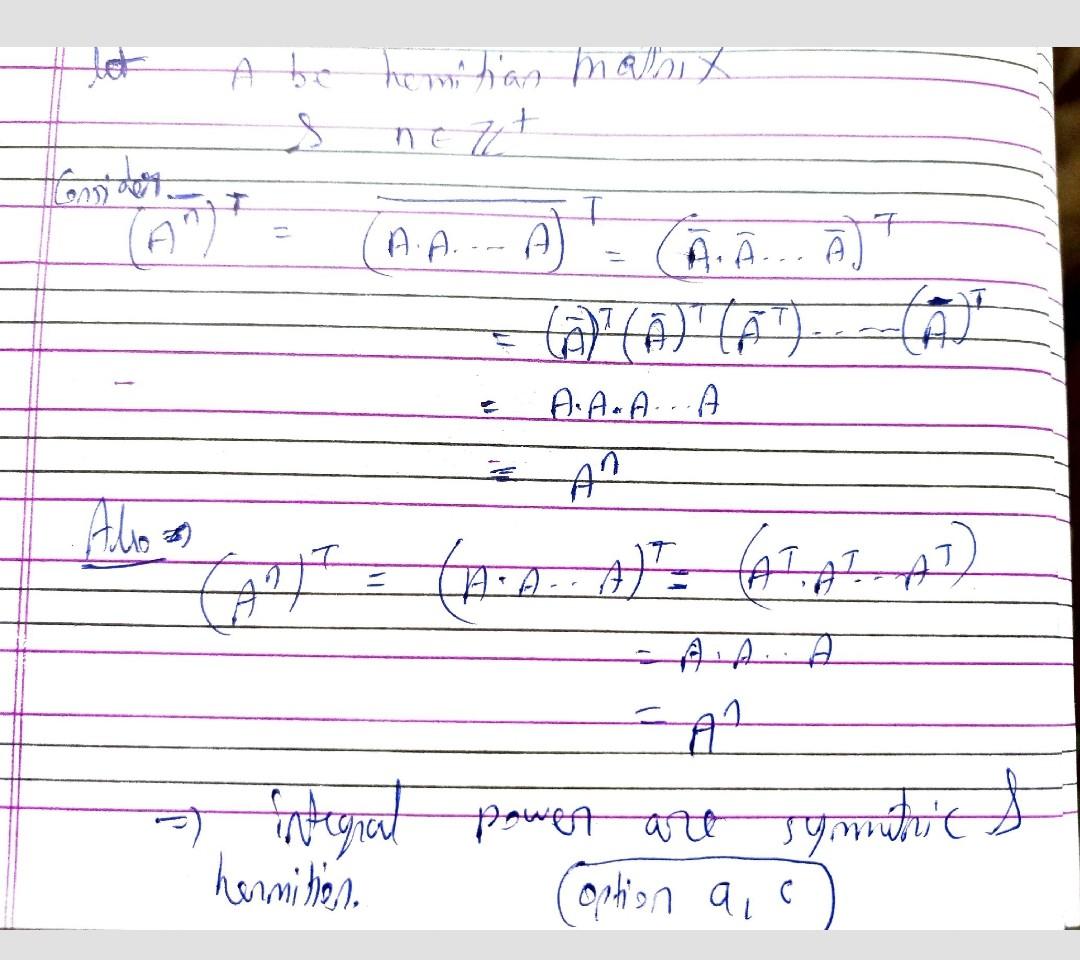 let A be hemitian matrix
& n ∈ Z⁺
Consider
(A̅ⁿ̅)ᵀ = (A.A.--- A)̅ᵀ = (Ā.Ā... Ā)ᵀ
= (Ā)ᵀ(Ā)ᵀ(Āᵀ)-----(Ā)ᵀ
= A.A.A...A
= Aⁿ
Also ⇒
(Aⁿ)ᵀ = (A.A...A)ᵀ = (Aᵀ.Aᵀ--Aᵀ)
= A.A...A
= Aⁿ
⇒ integral power are symmtric &
hermitian. (option a, c)